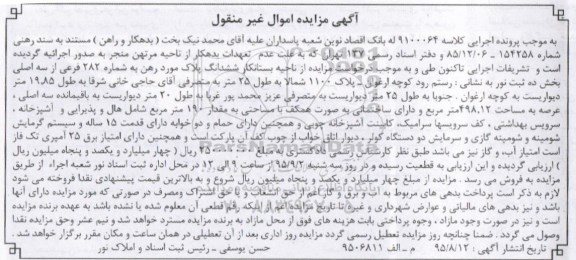 آگهی مزایده اموال غیر منقول
به موجب پرونده اجرایی کلاسه ۹۱۰۰۰۶۴ له بانک اقتصاد نوین شعبه پاسداران علیه آقای محمد نیک بخت (بدهکار و راهن) مستند به سند رهنی
شماره ۱۵۴۲۵۸ - ۸۵/۱۲/۰۶ و دفتر اسناد رسمی ۱۳۷ تهران که به علت عدم تعهدات بدهکار از ناحیه مرتهن منجر به صدور اجرائیه گردیده
است و تشریفات اجرایی تاکنون طی و به موجب مزایده از ناحیه بستانکار ششدانگ پلاک مورد رهن به شماره ۲۸۲ فرعی از سه اصلی
بخش ده ثبت نور به نشانی : رستم رود کوچه ارغوان - پلاک ۱۱۰۰ شمالا به طول ۲۵ متر به متصرفی آقای حاجی خانی شرقا به طول ۱۹.۸۵ متر
دیواریست به کوچه ارغوان . جنوبا به طول ۲۵ متر دیواریست به متصرفی عزیز محمد پور غربا به طول ۲۰ متر دیواریست به باقیمانده سه اصلی ،
عرصه به مساحت ۴۹۸.۱۲ متر مربع و دارای ساختمانی به صورت همکف با مساحتی به مقدار ۱۹۰ متر مربع شامل هال و پذیرایی و آشپزخانه ،
سرویس بهداشتی ، کف سرویسها سرامیک، کابینت آشپزخانه چوبی و همچنین دارای حمام و دو خوابه دارای قدمت ۱۵ ساله و سیستم گرمایش
شومینه و شومینه گازی و سرمایش دو دستگاه کولر ، دیوار اتاق خواب از چوب کف آن پارکت است و همچنین دارای امتیاز برق ۲۵ آمپری تک فاز
است امتیاز آب، و گاز نیز می باشد طبق نظر کارشناس رسمی دادگستری به مبلغ ریال ( چهار میلیارد و یکصد و پنجاه میلیون ریال
) ارزیابی گردیده و این ارزیابی به قطعیت رسیده و در روز سه شنبه ۹۵/۹/۲ از ساعت ۹ الی ۱۲ در محل اداره ثبت اسناد نور شعبه اجراء از طریق
مزایده به فروش می رسد . مزایده از مبلغ چهار میلیارد و یکصد و پنجاه میلیون ریال شروع و به بالاترین قیمت پیشنهادی نقدا فروخته می شود
لازم به ذکر است پرداخت بدهی های مربوط به آب و برق و گاز اعم از حق انشعاب و یا حق اشتراک ومصرف در صورتی که مورد مزایده دارای آنها
باشد و نیز بدهی های مالیاتی و عوارض شهرداری و غیره تا تاریخ مزایده اعم از اینکه رقم قطعی آن معلوم شده یا نشده باشد به عهده برنده مزایده
است و نیز در صورت وجود مازاد ، وجوه پرداختی بابت هزینه های فوق از محل مازاد به برنده مزایده مسترد خواهد شد و نیم عشر وحق مزایده نقدا
وصول می گردد . ضمنا چنانچه روز مزایده تعطیل رسمی گردد مزایده روز اداری بعد از آن تعطیلی در همان ساعت و مکان مقرر برگزار خواهد شد .
تاریخ انتشار آگهی : ۹۵/۸/۱۲ م - الف ۹۵۰۶۸۱۱ حسن یوسفی - رئیس ثبت اسناد و املاک نور